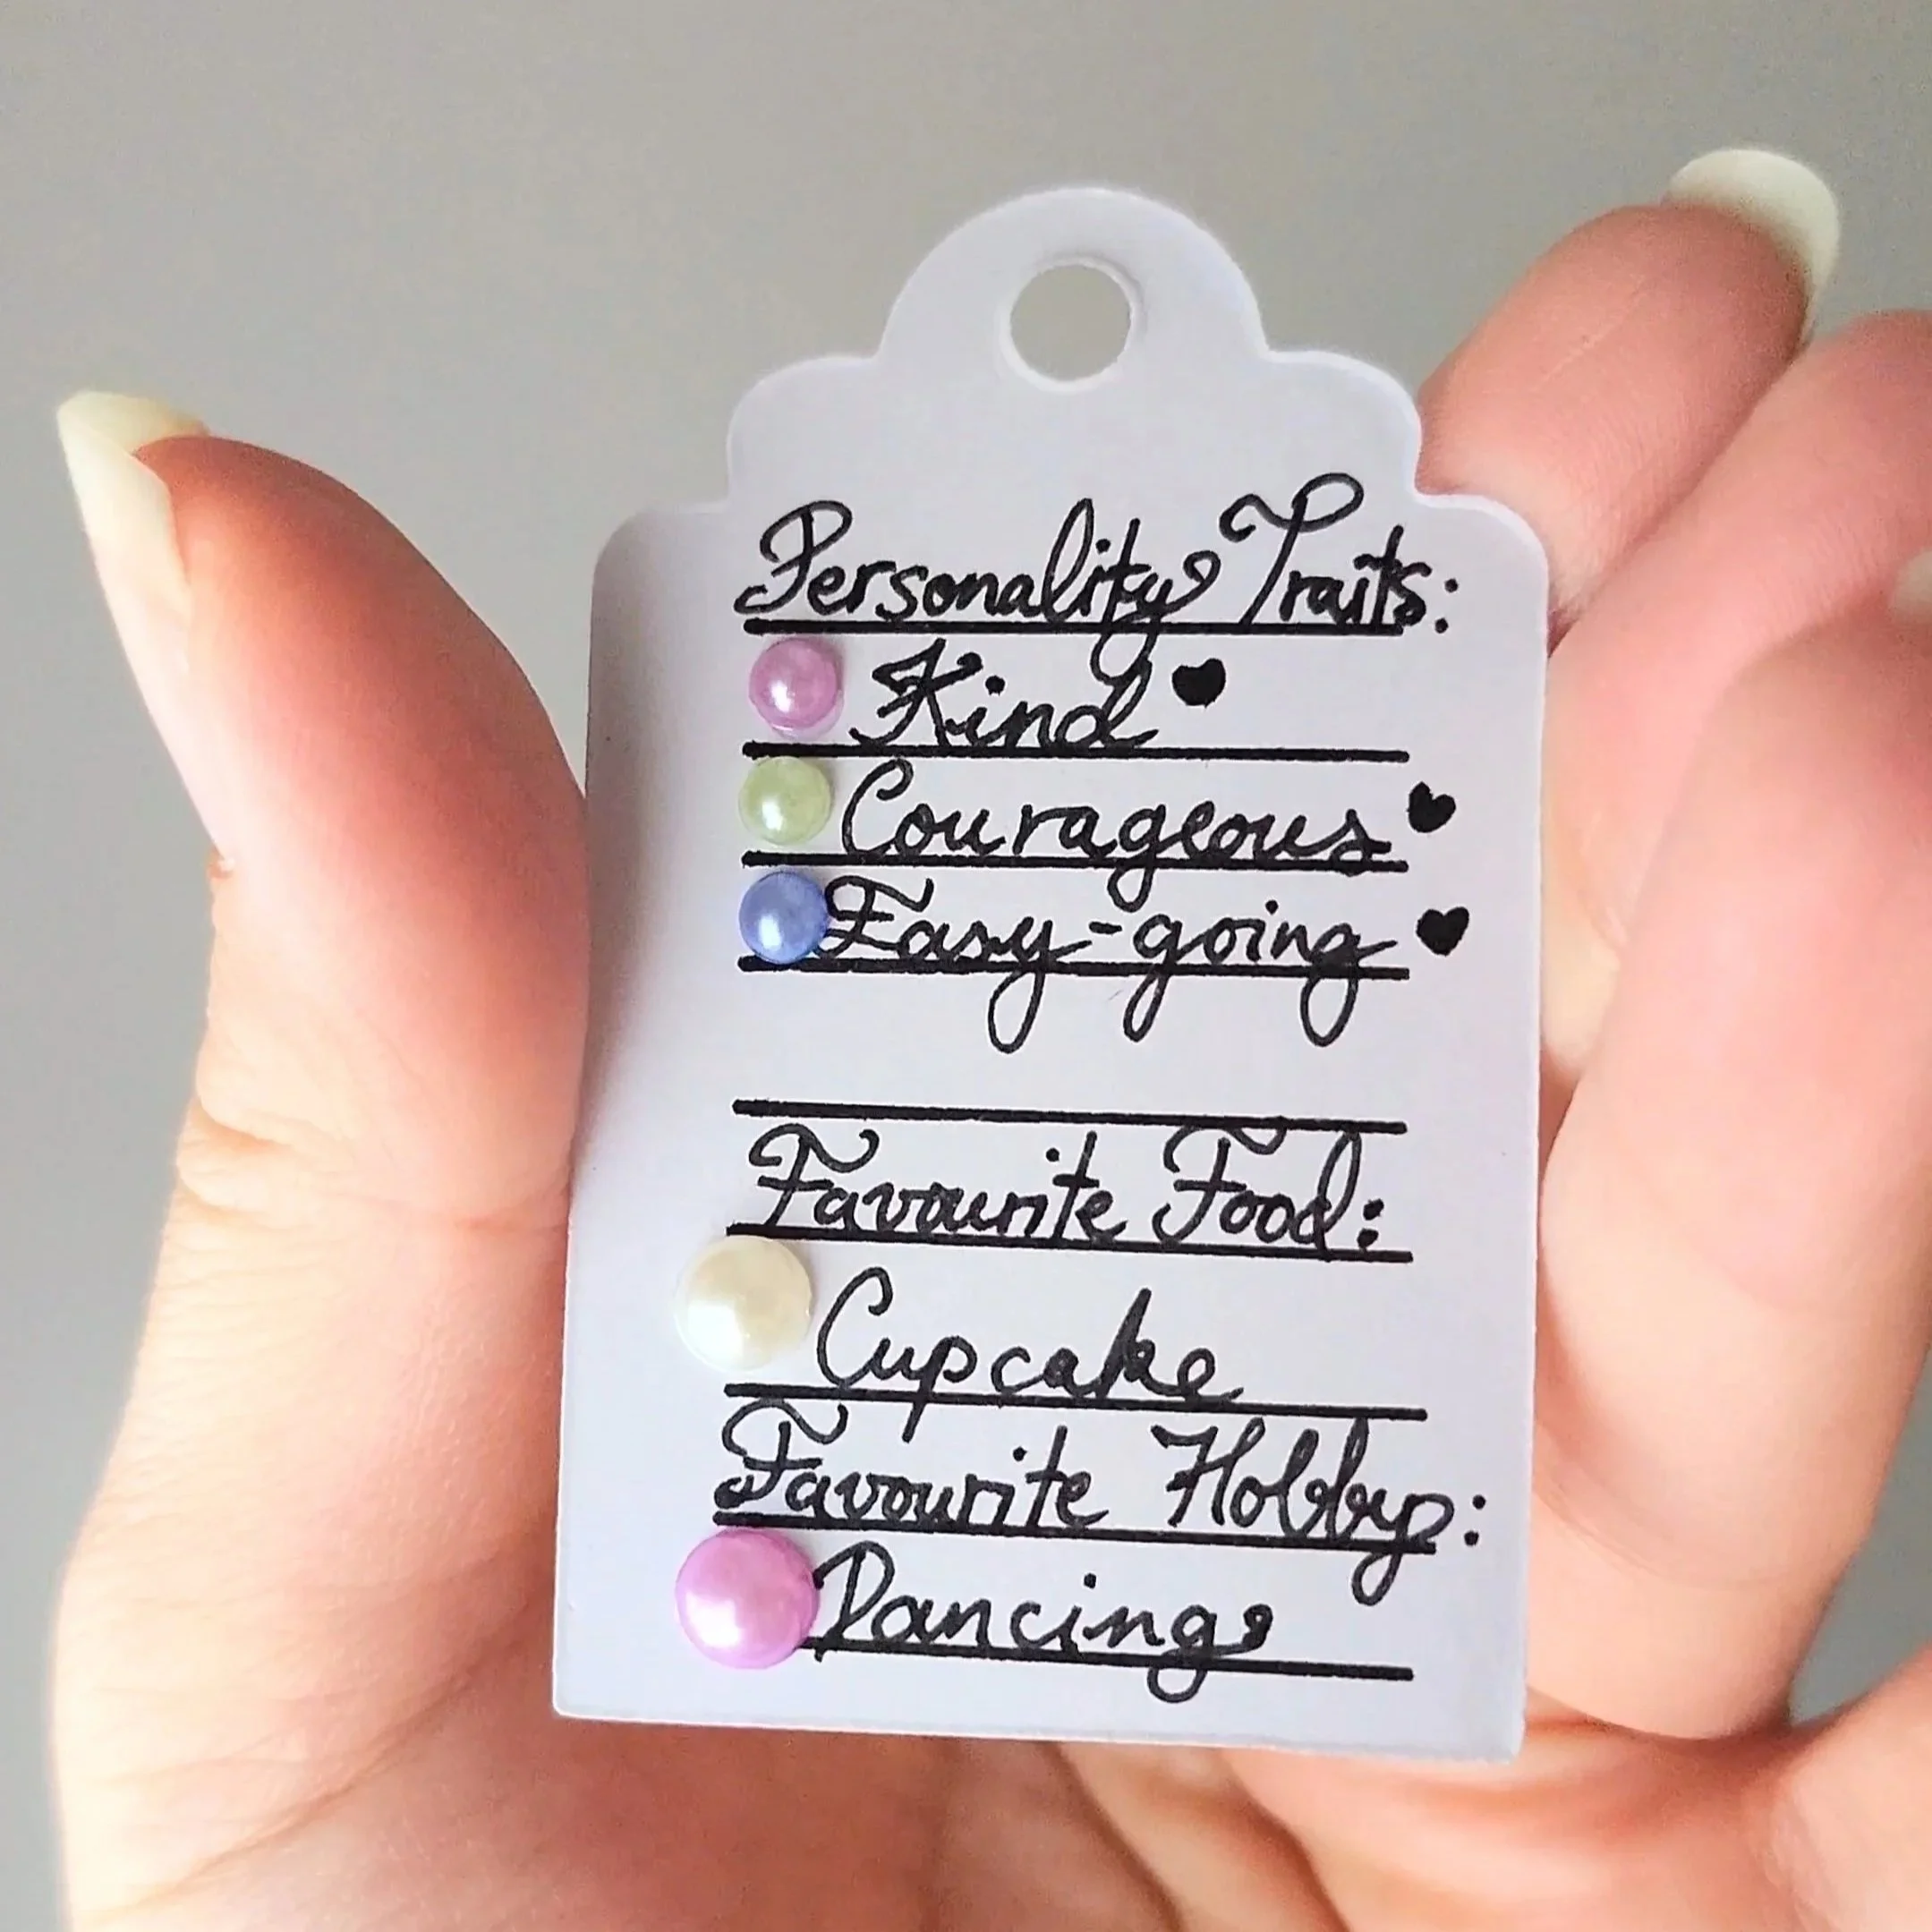 Personality Traits:
Kind
Courageous
Easy-going
Favourite Food:
Cupcake
Favourite Hobby:
Dancing